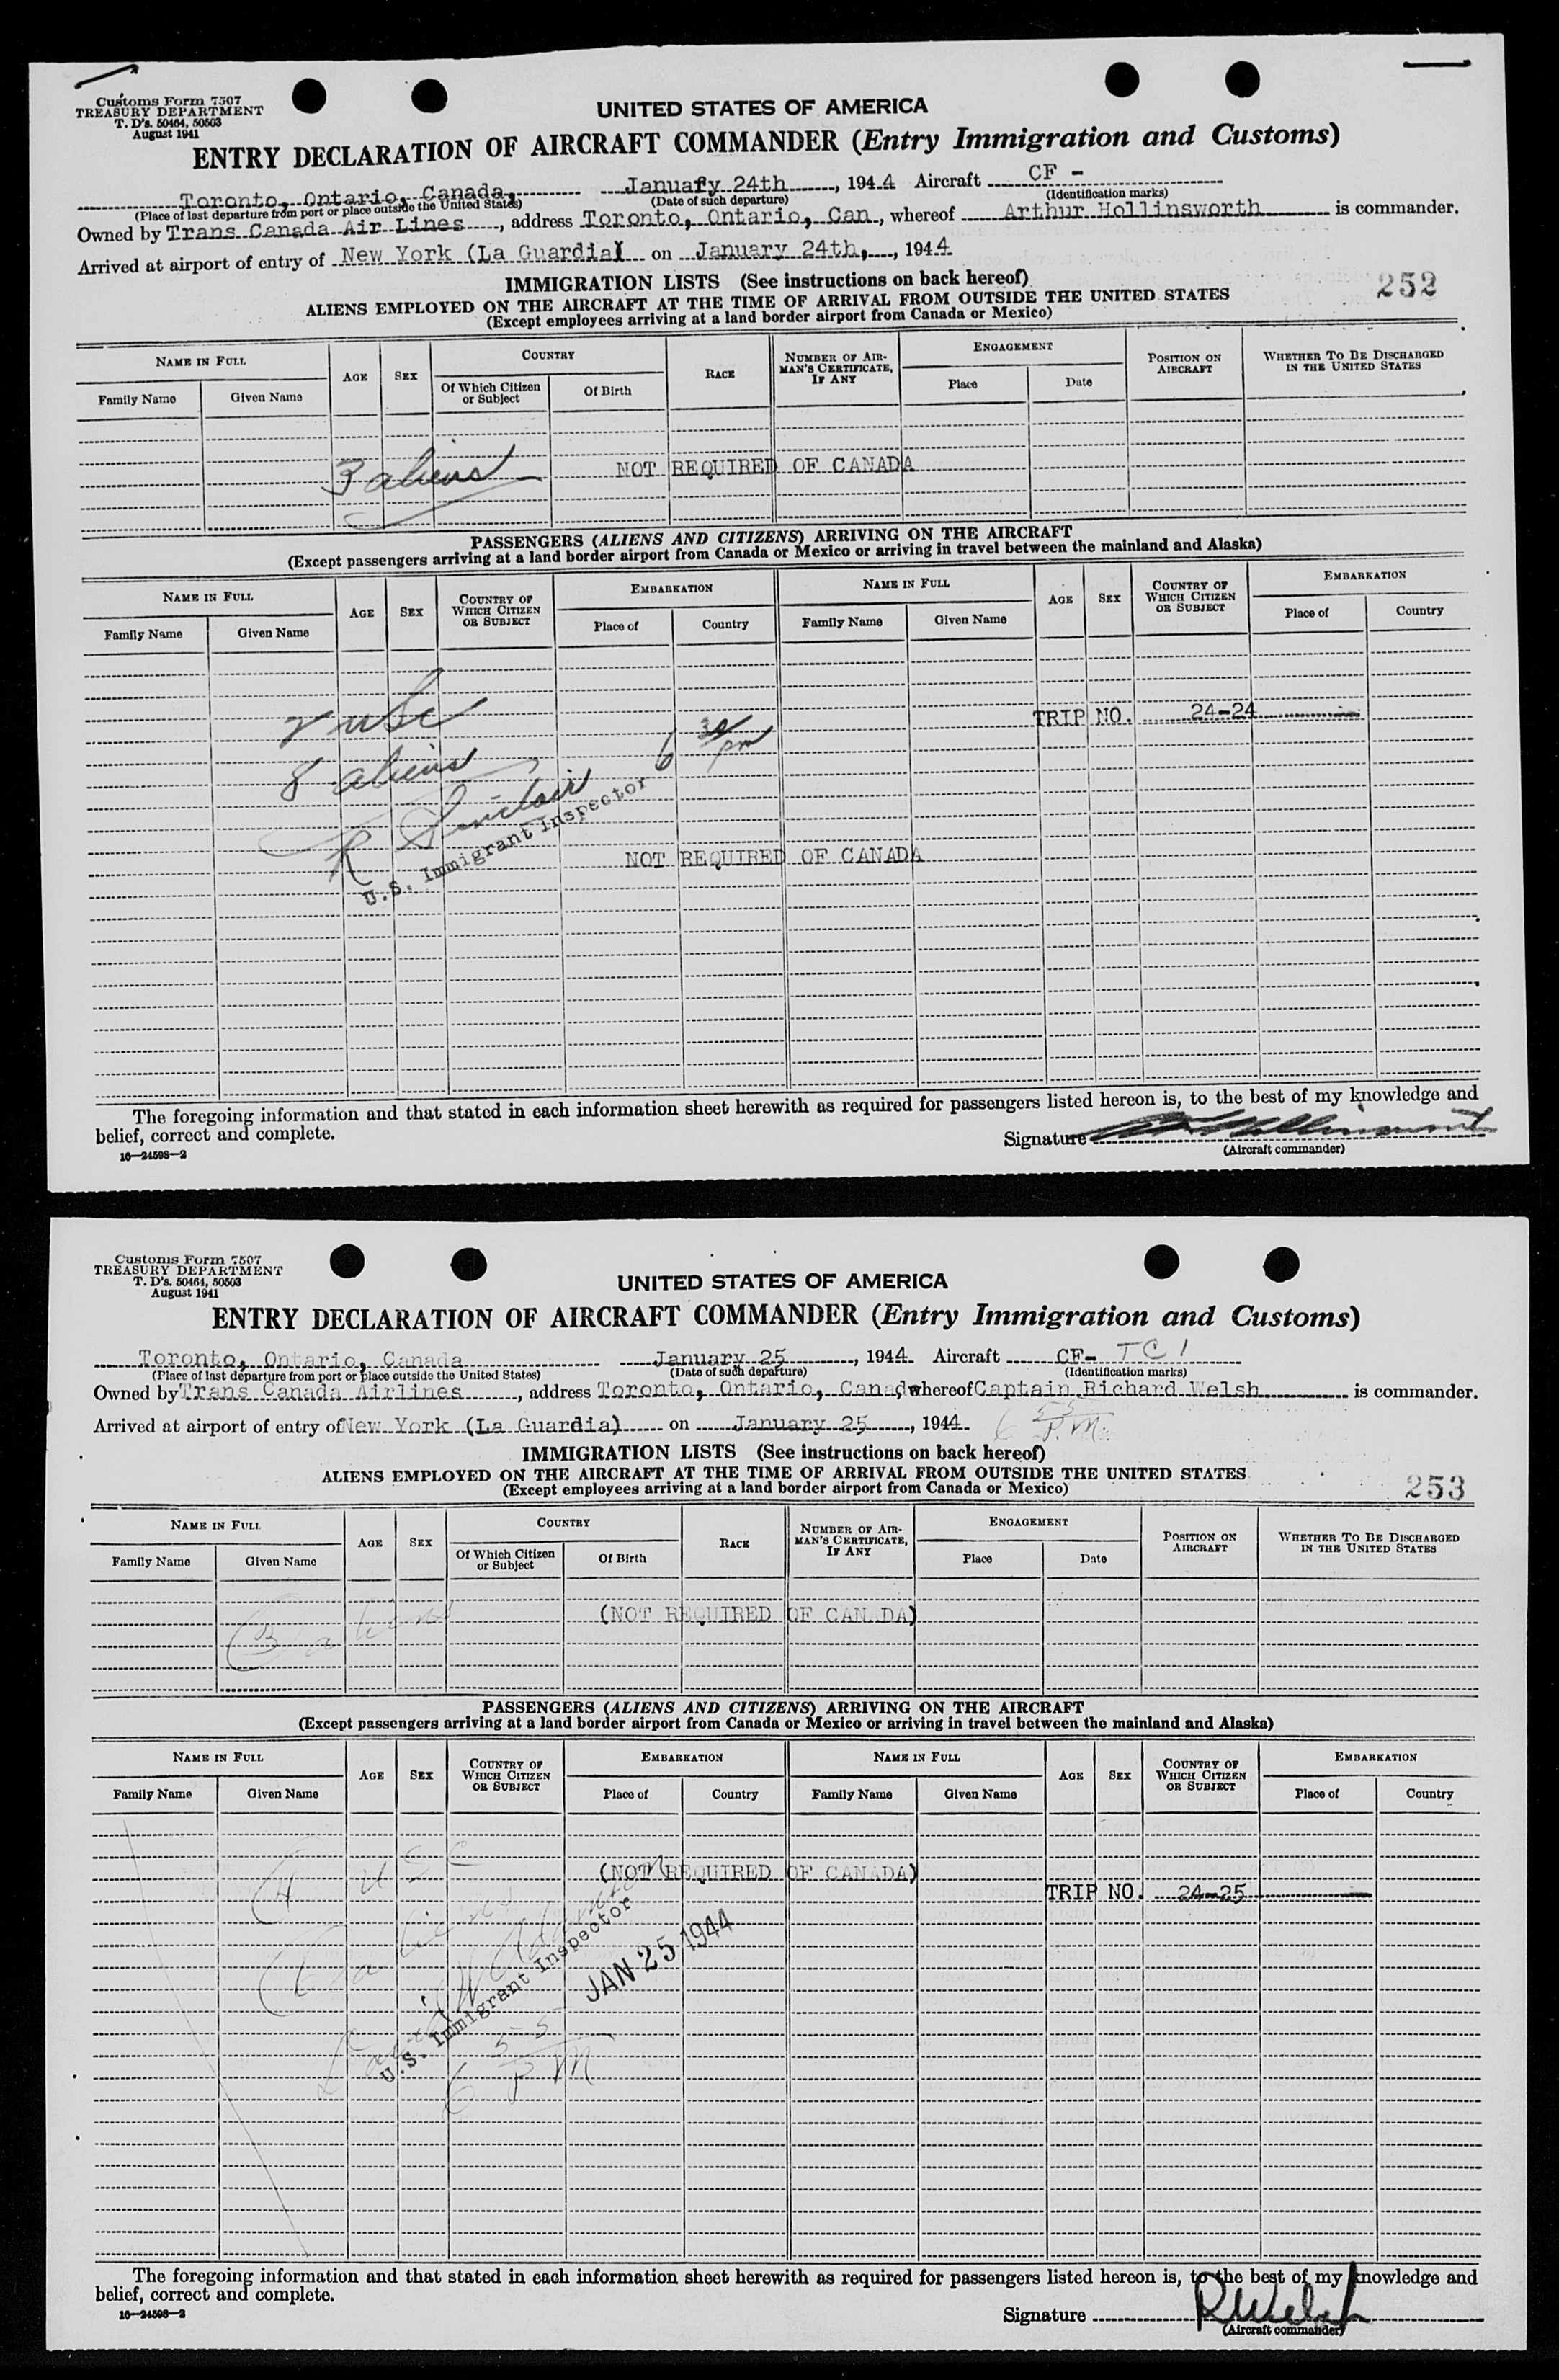 Customs Form 7507
TREASURY DEPARTMENT
T. D's. 50464, 50503
August 1941
UNITED STATES OF AMERICA
ENTRY DECLARATION OF AIRCRAFT COMMANDER (Entry Immigration and Customs)
Toronto, Ontario, Canada, January 24th, 1944 Aircraft CF -
(Place of last departure from port or place outside the United States) (Date of such departure) (Identification marks)
Owned by Trans Canada Air Lines, address Toronto, Ontario, Can., whereof Arthur Hollinsworth is commander.
Arrived at airport of entry of New York (La Guardia) on January 24th, 1944
IMMIGRATION LISTS (See instructions on back hereof)
252
ALIENS EMPLOYED ON THE AIRCRAFT AT THE TIME OF ARRIVAL FROM OUTSIDE THE UNITED STATES
(Except employees arriving at a land border airport from Canada or Mexico)
NAME IN FULL AGE SEX COUNTRY RACE NUMBER OF AIRMAN'S CERTIFICATE, IF ANY ENGAGEMENT POSITION ON AIRCRAFT WHETHER TO BE DISCHARGED IN THE UNITED STATES
Family Name Given Name Of Which Citizen or Subject Of Birth Place Date
3 aliens NOT REQUIRED OF CANADA
PASSENGERS (ALIENS AND CITIZENS) ARRIVING ON THE AIRCRAFT
(Except passengers arriving at a land border airport from Canada or Mexico or arriving in travel between the mainland and Alaska)
NAME IN FULL AGE SEX COUNTRY OF WHICH CITIZEN OR SUBJECT EMBARKATION NAME IN FULL AGE SEX COUNTRY OF WHICH CITIZEN OR SUBJECT EMBARKATION
Family Name Given Name Place of Country Family Name Given Name Place of Country
usc
TRIP NO. 24-24
8 aliens 6 30 pm
R Sinclair
U.S. Immigrant Inspector
NOT REQUIRED OF CANADA
The foregoing information and that stated in each information sheet herewith as required for passengers listed hereon is, to the best of my knowledge and
belief, correct and complete.
Signature
(Aircraft commander)
16—24598—2
Customs Form 7507
TREASURY DEPARTMENT
T. D's. 50464, 50503
August 1941
UNITED STATES OF AMERICA
ENTRY DECLARATION OF AIRCRAFT COMMANDER (Entry Immigration and Customs)
Toronto, Ontario, Canada January 25, 1944 Aircraft CF- TC1
(Place of last departure from port or place outside the United States) (Date of such departure) (Identification marks)
Owned by Trans Canada Airlines, address Toronto, Ontario, Canada, whereof Captain Richard Welsh is commander.
Arrived at airport of entry of New York (La Guardia) on January 25, 1944 6 55 P.M.
IMMIGRATION LISTS (See instructions on back hereof)
ALIENS EMPLOYED ON THE AIRCRAFT AT THE TIME OF ARRIVAL FROM OUTSIDE THE UNITED STATES
253
(Except employees arriving at a land border airport from Canada or Mexico)
NAME IN FULL AGE SEX COUNTRY RACE NUMBER OF AIRMAN'S CERTIFICATE, IF ANY ENGAGEMENT POSITION ON AIRCRAFT WHETHER TO BE DISCHARGED IN THE UNITED STATES
Family Name Given Name Of Which Citizen or Subject Of Birth Place Date
(NOT REQUIRED OF CANADA)
3 aliens
PASSENGERS (ALIENS AND CITIZENS) ARRIVING ON THE AIRCRAFT
(Except passengers arriving at a land border airport from Canada or Mexico or arriving in travel between the mainland and Alaska)
NAME IN FULL AGE SEX COUNTRY OF WHICH CITIZEN OR SUBJECT EMBARKATION NAME IN FULL AGE SEX COUNTRY OF WHICH CITIZEN OR SUBJECT EMBARKATION
Family Name Given Name Place of Country Family Name Given Name Place of Country
4 USC (NOT REQUIRED OF CANADA)
TRIP NO. 24-25
aliens
U.S. Immigrant Inspector
JAN 25 1944
6 55 PM
The foregoing information and that stated in each information sheet herewith as required for passengers listed hereon is, to the best of my knowledge and
belief, correct and complete.
Signature R Welsh
(Aircraft commander)
16—24598—2